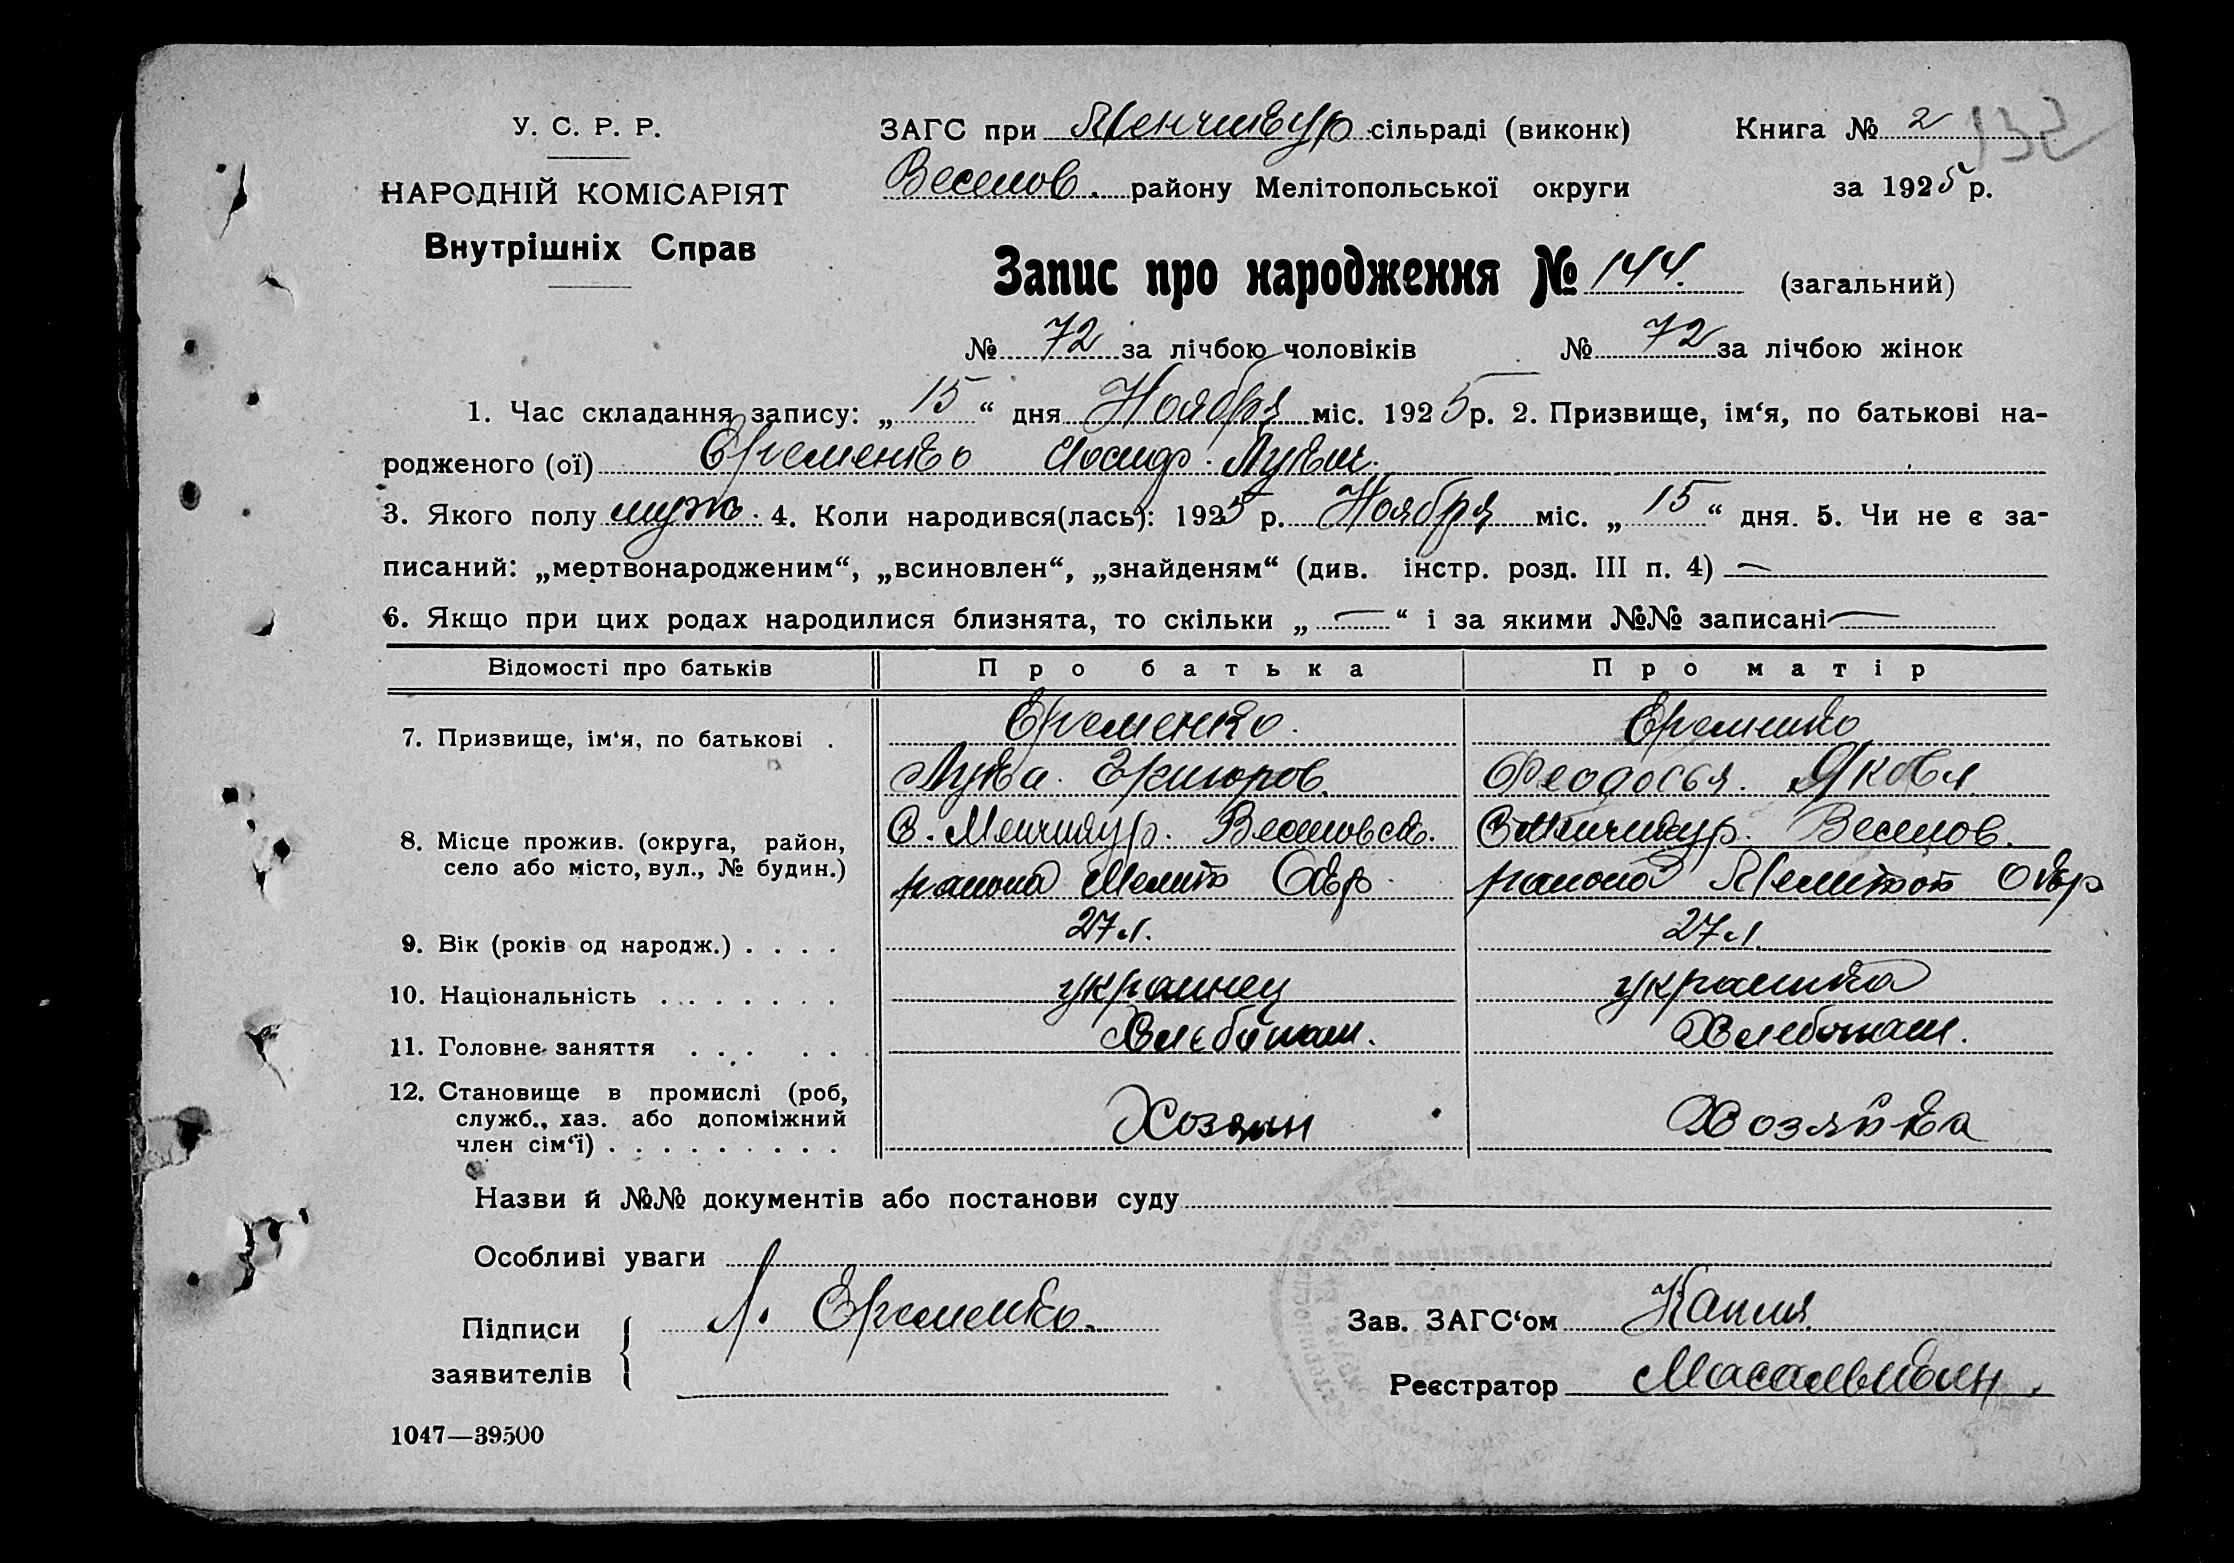 У. С. Р. Р.
НАРОДНІЙ КОМІСАРІЯТ
Внутрішніх Справ
ЗАГС при Менчикур сільраді (виконк)
Веселов. району Мелітопольської округи
Книга № 2 132
за 1925 р.
Запис про народження № 144. (загальний)
№ 72 за лічбою чоловіків № 72 за лічбою жінок
1. Час складання запису: „ 15 “ дня Ноября міс. 1925 р. 2. Призвище, ім‘я, по батькові на-
родженого (ої) Еременко Иосиф Лукич.
3. Якого полу муж. 4. Коли народився(лась): 1925 р. Ноября міс. „ 15 “ дня. 5. Чи не є за-
писаний: „мертвонародженим“, „всиновлен“, „знайденям“ (див. інстр. розд. III п. 4) —
6. Якщо при цих родах народилися близнята, то скільки „ — “ і за якими №№ записані —
Відомості про батьків Про батька Про матір
7. Призвище, ім‘я, по батькові . Еременко. Еременко
Лука Григоров. Феодосья. Яковл
8. Місце прожив. (округа, район, село або місто, вул., № будин.) С. Менчикур. Веселовск. С. Менчикур. Веселов.
района Мелит Окр. района Мелитоп Окр
9. Вік (років од народж.) . . . . 27 л. 27 л.
10. Національність . . . . . . . украинец украинка
11. Головне заняття . . . . . Хлебопаш. Хлебопаш.
12. Становище в промислі (роб, служб., хаз. або допоміжний член сім‘ї) . . . . . . . . . Хозяин Хозяйка
Назви й №№ документів або постанови суду
Особливі уваги
Підписи заявителів Л. Еременко.
Зав. ЗАГС‘ом Капля
Реєстратор
1047—39500